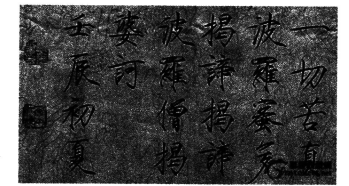 一切苦真
波羅蜜
揭諦揭諦
波羅僧揭
婆訶
壬辰初夏